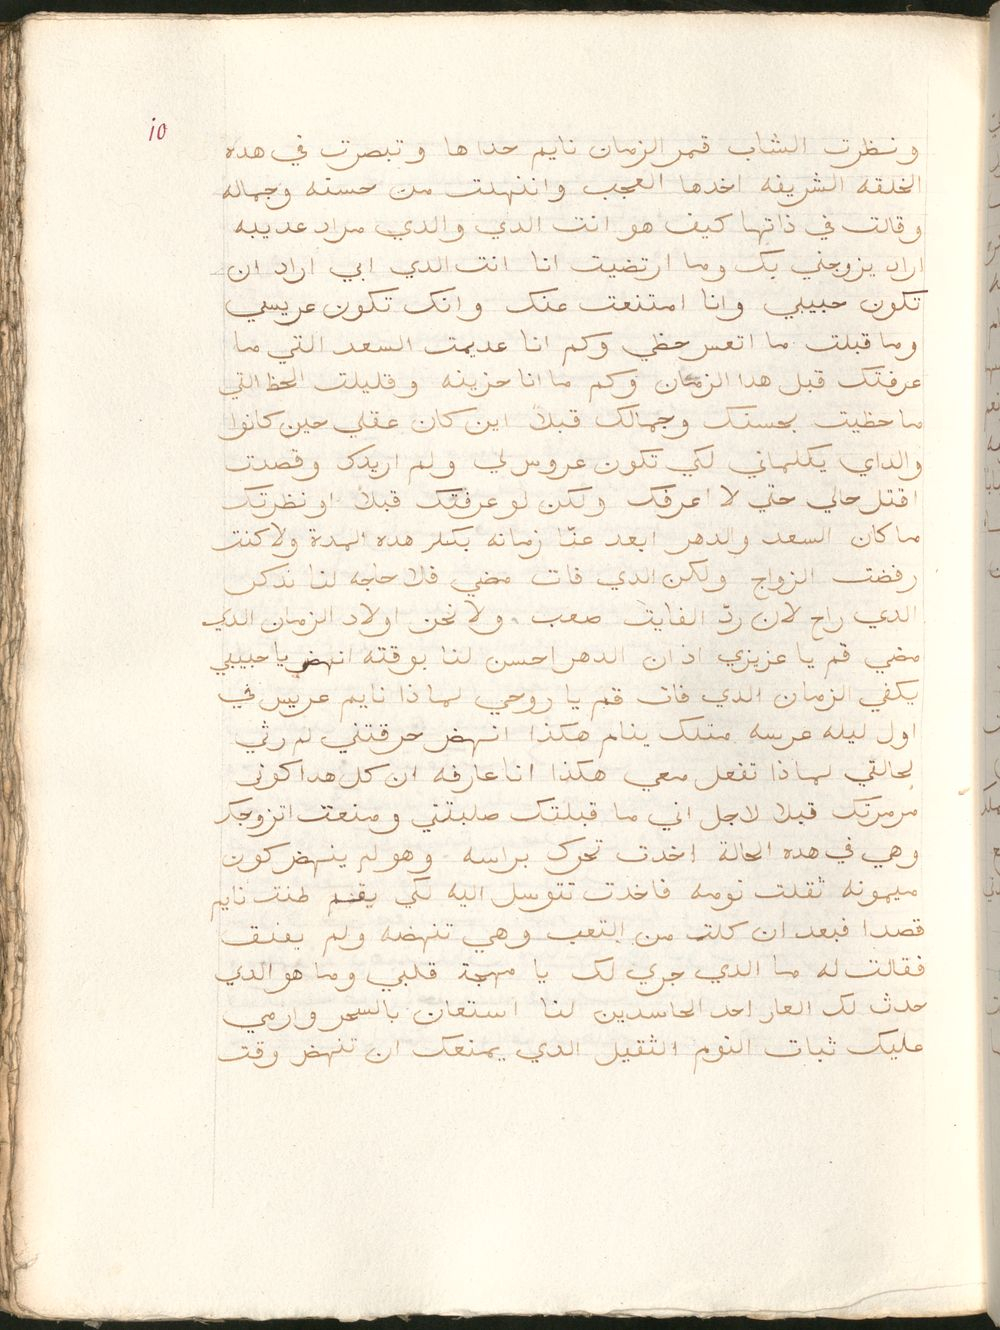 10
ونظرت الشاب قمر الزمان نايم حداها وتبصرت في هده
الخلقه الشريفه اخدها العجب وانذهلت من حسنه وجماله
وقالت في ذاتها كيف هو انت الدي والدي مراد عديبه
اراد يزوجني بك وما ارتضيت انا انت الدي ابي اراد ان
تكون حبيبي وانا امتنعت عنك وانك تكون عريسي
وما قبلت ما اتعس حظي وكم انا عديمت السعد التي ما
عرفتك قبل هدا الزمان وكم ما انا حزينه وقليلت الحظ التي
ما حظيت بحسنك وجمالك قبلاً اين كان عقلي حين كانوا
والداي يكلماني لكي تكون عروس لي ولم اريدك وقصدت
اقتل حالي حتي لا اعرفك ولكن لو عرفتك قبلا او نظرتك
ما كان السعد والدهر ابعد عنّا زمانه بكلر هده المدة ولا كنت
رفضت الزواج ولكن الدي فات مضي فلا حاجه لنا ندكر
الدي راح لان ردّ الفايت صعب ولا نحن اولاد الزمان الدي
مضي قم يا عزيزي اذ ان الدهر احسن لنا بوقته انهض يا حبيبي
يكفي الزمان الدي فات قم يا روحي لماذا نايم عريس في
اول ليله عرسه متلك ينام هكذا انهض حرقتني لم رثي
لحالتي لماذا تفعل معي هكذا انا عارفه ان كل هدا كوني
مرمرتك قبلا لاجل اني ما قبلتك صلبتني ومنعت اتزوجك
وهي في هده الحالة اخدت تحرك براسه وهو لم ينهض كون
ميمونه ثقلت نومه فاخدت تتوسل اليه لكي يقم ظنت نايم
قصدا فبعد ان كلت من التعب وهي تنهضه ولم يفيق
فقالت له ما الدي جري لك يا مهجة قلبي وما هو الدي
حدث لك العار احد الحاسدين لنا استعان بالسحر وارمي
عليك ثبات النوم الثقيل الدي يمنعك ان تنهض وقت